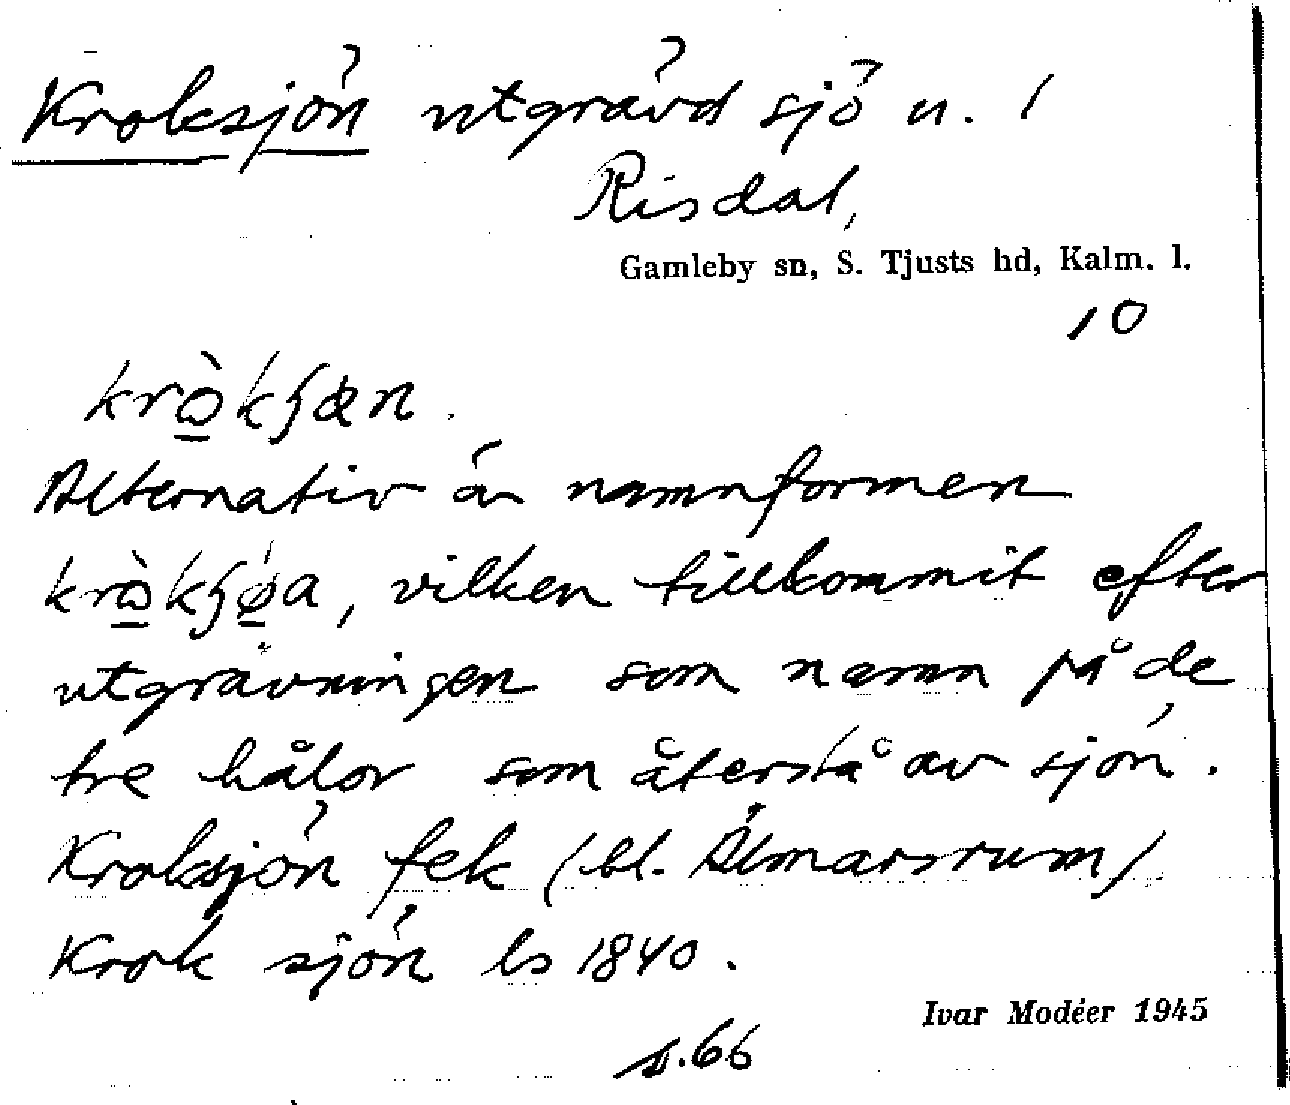 Kroksjön utgrävd sjö u. /
Risdal,
Gamleby sn, S. Tjusts hd, Kalm. l.
10
Alternativ är namnformen
vilken tillkommit efter
utgrävningen som namn på de
tre hålor som återstå av sjön.
Kroksjön fek (bl. Älmarsrum)
Krok sjön ls 1840.
Ivar Modéer 1945
s.66